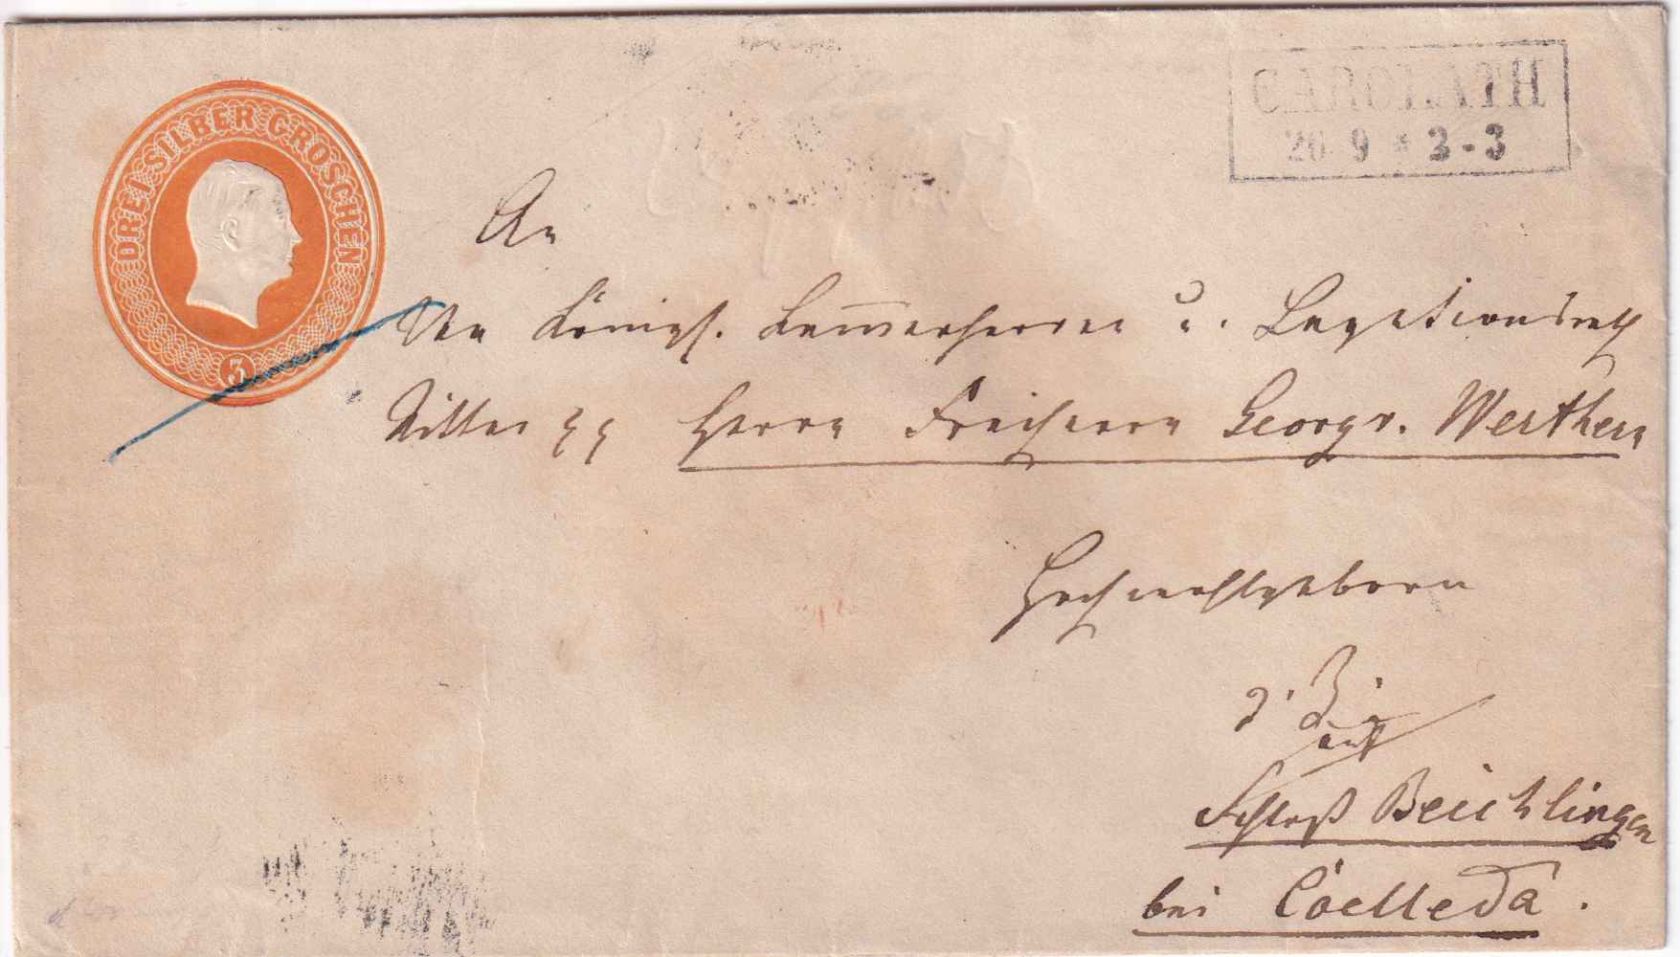 DREI SILBER GROSCHEN
3
CAROLATH
20 9 * 2-3
An
Den Königl. Kammerherren u. Legationsrath
Ritter pp Herrn Freiherrn Georg v. Werthern
Hochwohlgeborn
auf
Schloß Beichlingen
bei Cöelleda.